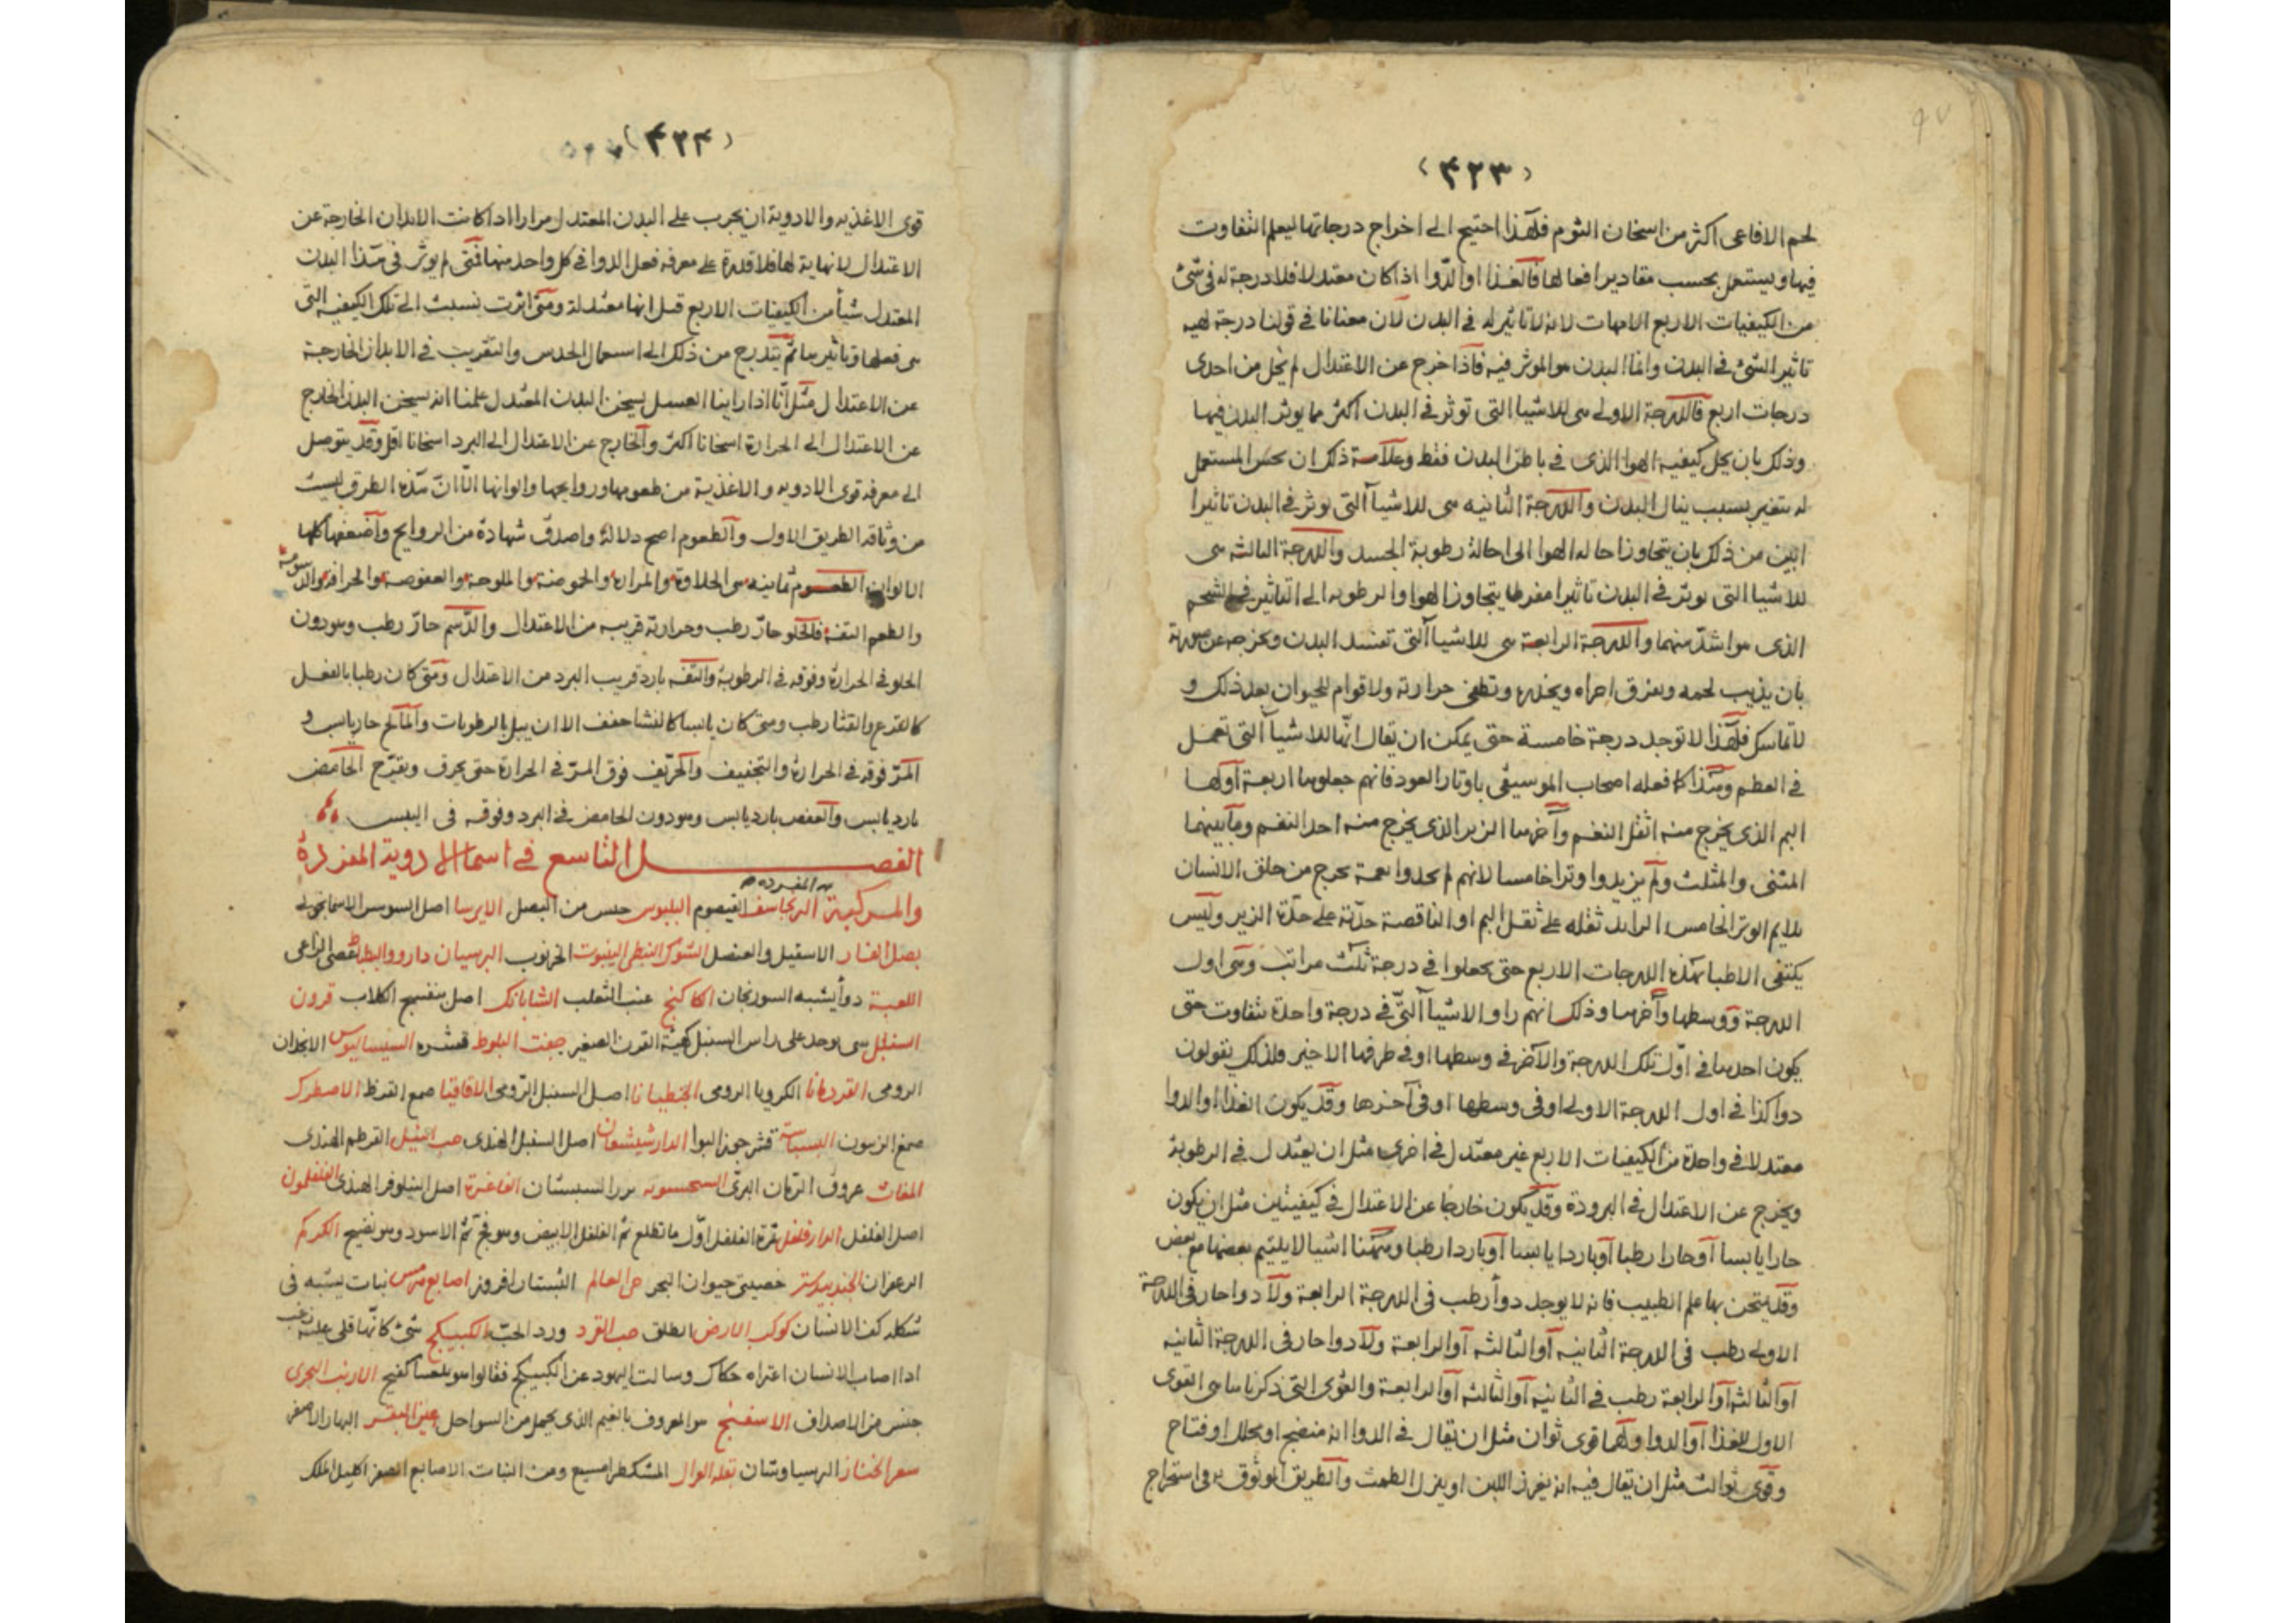 ﴿٤٢٣﴾
لحم الافاعى اكثر من اسخان الثوم فلهذا احتيج الى اخراج درجاتها ليعلم التفاوت
فيها ويستعمل بحسب مقادير افعالها فالغذا او الدوا اذا كان معتدلا فلا درجة له فى شئ
من الكيفيات الاربع الامهات لانه لا تاثير له فى البدن لان معنانا فى قولنا درجة هيه
تاثير الشئ فى البدن وانما البدن هو الموثر فيه فاذا خرج عن الاعتدال لم يخل من احدى
درجات اربع فالدرجة الاولى هى للاشيا التى توثر فى البدن اكثر مما يوثر البدن فيها
وذلك بان يحيل كيفيه الهوا الذى فى باطن البدن فقط وعلامة ذلك ان يحس المستعمل
له بتغير بسبب ينال البدن والدرجة الثانيه هى للاشيا التى توثر فى البدن تاثيرا
ابين من ذلك بان يتجاوز احاله الهوا الى احالة رطوبة الجسد والدرجة الثالثه هى
للاشيا التى توثر فى البدن تاثيرا مفرطا يتجاوز الهوا والرطوبه الى التاثير فى الشحم
الذى هو اشد منهما والدرجة الرابعة هى للاشيا التى تفسد البدن وتخرجه عن
بان يذيب لحمه ويفرق اجزاه ويخدره وتطفى حرارته ولا قوام للحيوان بعد ذلك و
لا تماسك فلهذا لا توجد درجة خامسة حتى يمكن ان يقال انها للاشيا التى تعمل
فى العظم وهذا كما فعله اصحاب الموسيقى باوتار العود فانهم جعلوها اربعة اولها
البم الذى يخرج منه اثقل النغم واخرها الزير الذى يخرج منه احد النغم وما بينهما
المثنى والمثلث ولم يزيدوا وترا خامسا لانهم لم يجدوا نغمة تخرج من حلق الانسان
يلايم الوتر الخامس الزايد ثقله على ثقل البم او الناقصة حدته على حدة الزير وليس
يكتفى الاطبا بهذه الدرجات الاربع حتى يجعلوا فى درجة ثلث مراتب وهى اول
الدرجة ووسطها واخرها وذلك انهم راوا الاشيا التى فى درجة واحدة تتفاوت حتى
يكون احدها فى اول تلك الدرجة والاخر فى وسطها او فى طرفها الاخير فلذلك يقولون
دوا كذا فى اول الدرجة الاولى او فى وسطها او فى آخرها وقد يكون الغذا او الدوا
معتدلا فى واحدة من الكيفيات الاربع غير معتدل فى اخرى مثل ان يعتدل فى الرطوبة
ويخرج عن الاعتدال فى البرودة وقد يكون خارجا عن الاعتدال فى كيفيتين مثل ان يكون
حارا يابسا او حارا رطبا او باردا يابسا او باردا رطبا وههنا اشيا لا يلتيم بعضها مع بعض
وقد يمتحن بها علم الطبيب فانه لا يوجد دوا رطب فى الدرجة الرابعة ولا دوا حار فى الدرجة
الاولى رطب فى الدرجة الثانيه او الثالثه او الرابعة ولا دوا حار فى الدرجة الثانيه
او الثالثه او الرابعة رطب فى الثانيه او الثالثه او الرابعة والقوى التى ذكرناها هى القوى
الاول للغذا او الدوا ولهما قوى ثوان مثل ان يقال فى الدوا انه منضج او محلل او فتاح
وقوى ثوالث مثل ان يقال فيه انه يغزر اللبن او ينزل الطمث والطريق الموثوق به فى استخراج
﴿٤٢٤﴾
قوى الاغذيه والادوية ان يجرب على البدن المعتدل مرارا اذا كانت الابدان الخارجة عن
الاعتدال لا نهاية لها فلا قدرة على معرفه فعل الدوا فى كل واحد منها فمتى لم يوثر فى هذا البدن
المعتدل شيأ من الكيفيات الاربع قيل انها معتدلة ومتى اثرت نسبت الى تلك الكيفيه التى
هى فعلها وتاثيرها ثم يتدرج من ذلك الى استعمال الحدس والتقريب فى الابدان الخارجة
عن الاعتدال مثل انا اذا راينا العسل يسخن البدن المعتدل علمنا انه يسخن البدن الخارج
عن الاعتدال الى الحرارة اسخانا اكثر والخارج عن الاعتدال الى البرد اسخانا اقل وقد يتوصل
الى معرفه قوى الادويه والاغذية من طعومها وروايحها والوانها الا ان هذه الطرق ليست
من وثاقه الطريق الاول والطعوم اصح دلالة واصدق شهادة من الروايح واضعفها كلها
الالوان الطعوم ثمانيه هى الحلاوة والمرارة والحموضة والملوحة والعفوصة والحرافة والدسومة
والطعم التفه فالحلو حار رطب وحرارته قريبه من الاعتدال والدسم حار رطب وهو دون
الحلو فى الحرارة وفوقه فى الرطوبة والتفه بارد قريب البرد من الاعتدال ومتى كان رطبا بالفعل
كالقرع والقثا رطب ومتى كان يابسا كالنشا جفف الا ان يبل بالرطوبات والمالح حار يابس و
المر فوقه فى الحرارة والتجفيف والحريف فوق المر فى الحرارة حتى يحرق ويقرح الحامض
بارد يابس والعفص بارد يابس وهو دون الحامض فى البرد وفوقه فى اليبس
الفصل التاسع فى اسما الادوية المفردة
والمركبة البرنجاسف القيصوم البلبوس جنس من البصل الايرسا اصل السوسن الاسمانجونى
بصل الفار الاسقيل والعنصل الشوك النبطى الينبوت الخرنوب البرسيان دارو والبطباط عصى الراعى
اللعبة دوأ يشبه السورنجان الكاكنج عنب الثعلب الشابانك اصل بنفسج الكلاب قرون
السنبل شى يوجد على راس السنبل كهيئة القرن الصغير جفت البلوط قشره السيساليوس الانجدان
الرومى القردمانا الكرويا الرومى الجنطيانا اصل السنبل الرومى الاقاقيا صمغ القرظ الاصطرك
صمغ الزيتون البسباسه قشر جوز البوا الدارشيشعان اصل السنبل الهندى حب النيل القرطم الهندى
المغاث عروق الرمان البرى السبستان الفاغرة اصل النيلوفر الهندى الفلفلمون
اصل الفلفل الدارفلفل ثمرة الفلفل اول ما تطلع ثم الفلفل الابيض وهو فج ثم الاسود وهو نضيج الكركم
الزعفران الجندبيدستر خصيتى حيوان البحر حى العالم البستان افروز اصابع هرمس نبات يشبه فى
شكله كف الانسان كوكب الارض الطلق حب القرد ورد الحب الكبيكج شئ كانها قلى عليه زغب
اذا اصاب الانسان اعتراه حكاك وسالت اليهود عن الكبيكج فقالوا هو كفيج الارنب البحرى
جنس من الاصداف الاسفنج هو المعروف بالغيم الذى يحمل من السواحل عين البقر البهار الاصفر
شعر الخناز البرسياوشان المشكطرامسيع ومن النبات الاصابع الصفر اكليل الملك